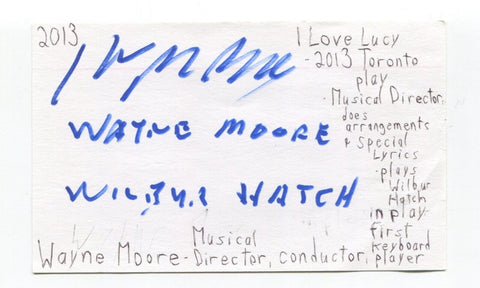 2013
I Love Lucy
-2013 Toronto
play
-Musical Director,
does
arrangements
& Special
Lyrics
-plays
Wilbur
Hatch
in play-
first
keyboard
player
WAYNE MOORE
WILBUR HATCH
Wayne Moore-Musical Director, conductor,